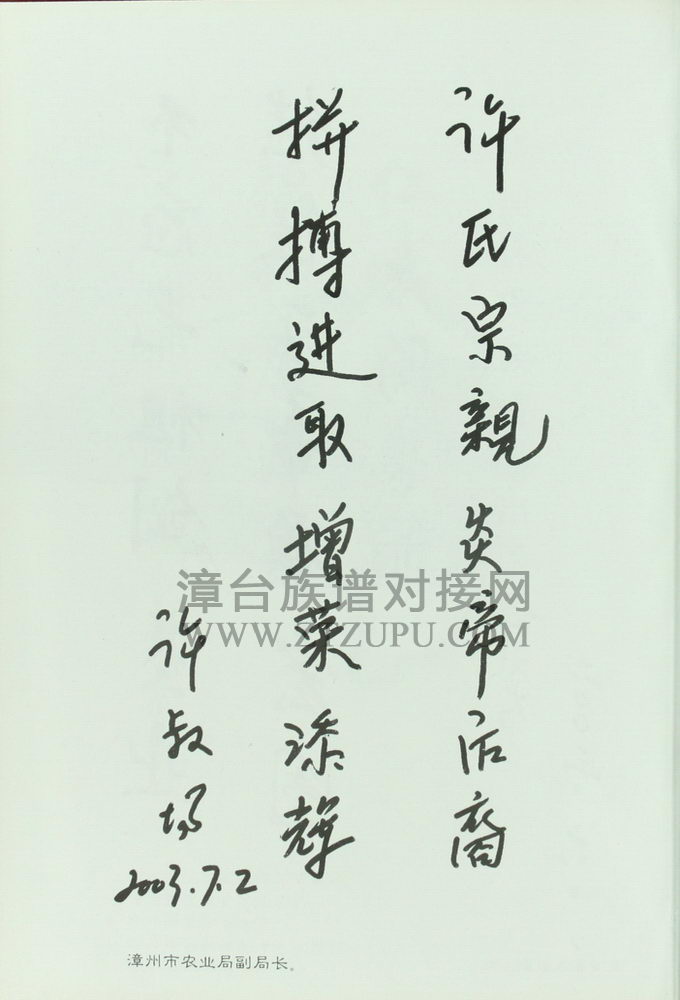 许氏宗親炎帝后裔
拼搏进取增荣添辉
许叔场
2003.7.2
漳州市农业局副局长。
漳台族谱对接网
WWW.ZTZUPU.COM